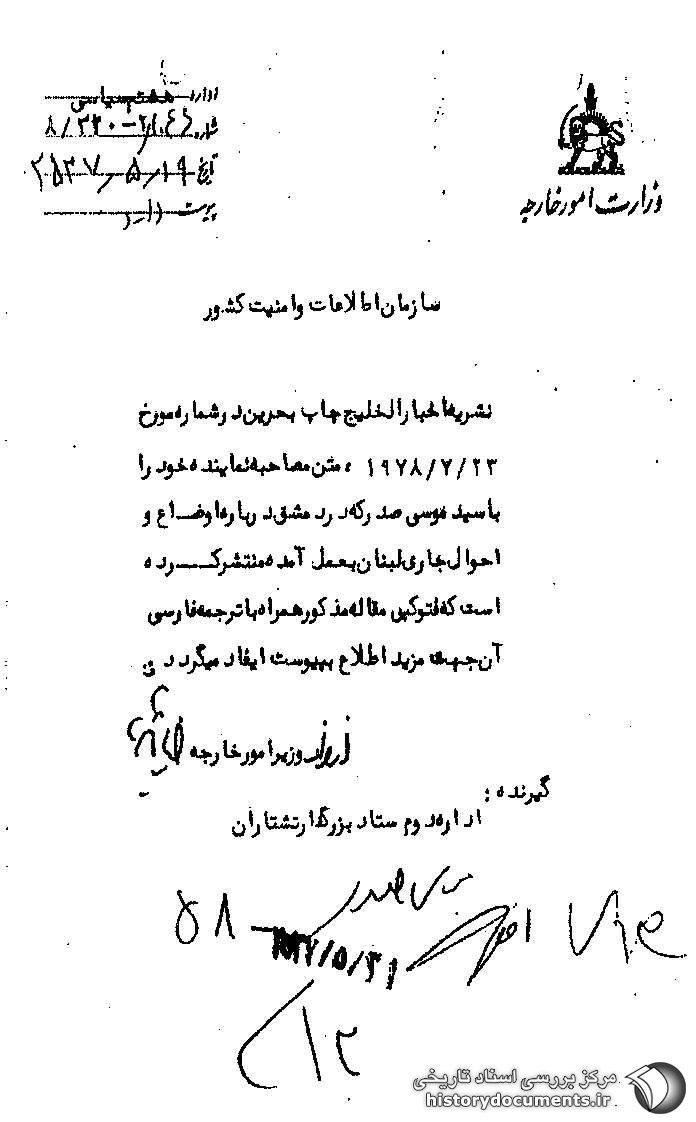 اداره هشتم سیاسی
شماره
تاریخ ۲۵۳۷/۵/۱۹
پیوست دارد
وزارت امور خارجه
سازمان اطلاعات و امنیت کشور
نشریه اخبار الخلیج چاپ بحرین در شماره مورخ
۱۹۷۸/۷/۲۳ ، متن مصاحبه نماینده خود را
با سید موسی صدر که در دمشق درباره اوضاع و
احوال جاری لبنان بعمل آمده منتشر کرده
است که فتوکپی مقاله مذکور همراه با ترجمه فارسی
آن جهت مزید اطلاع بپیوست ایفاد میگردد
از طرف وزیر امور خارجه
گیرنده :
اداره دوم ستاد بزرگ ارتشتاران
۵۸
۵/۳۱
۱۲
مرکز بررسی اسناد تاریخی
historydocuments.ir